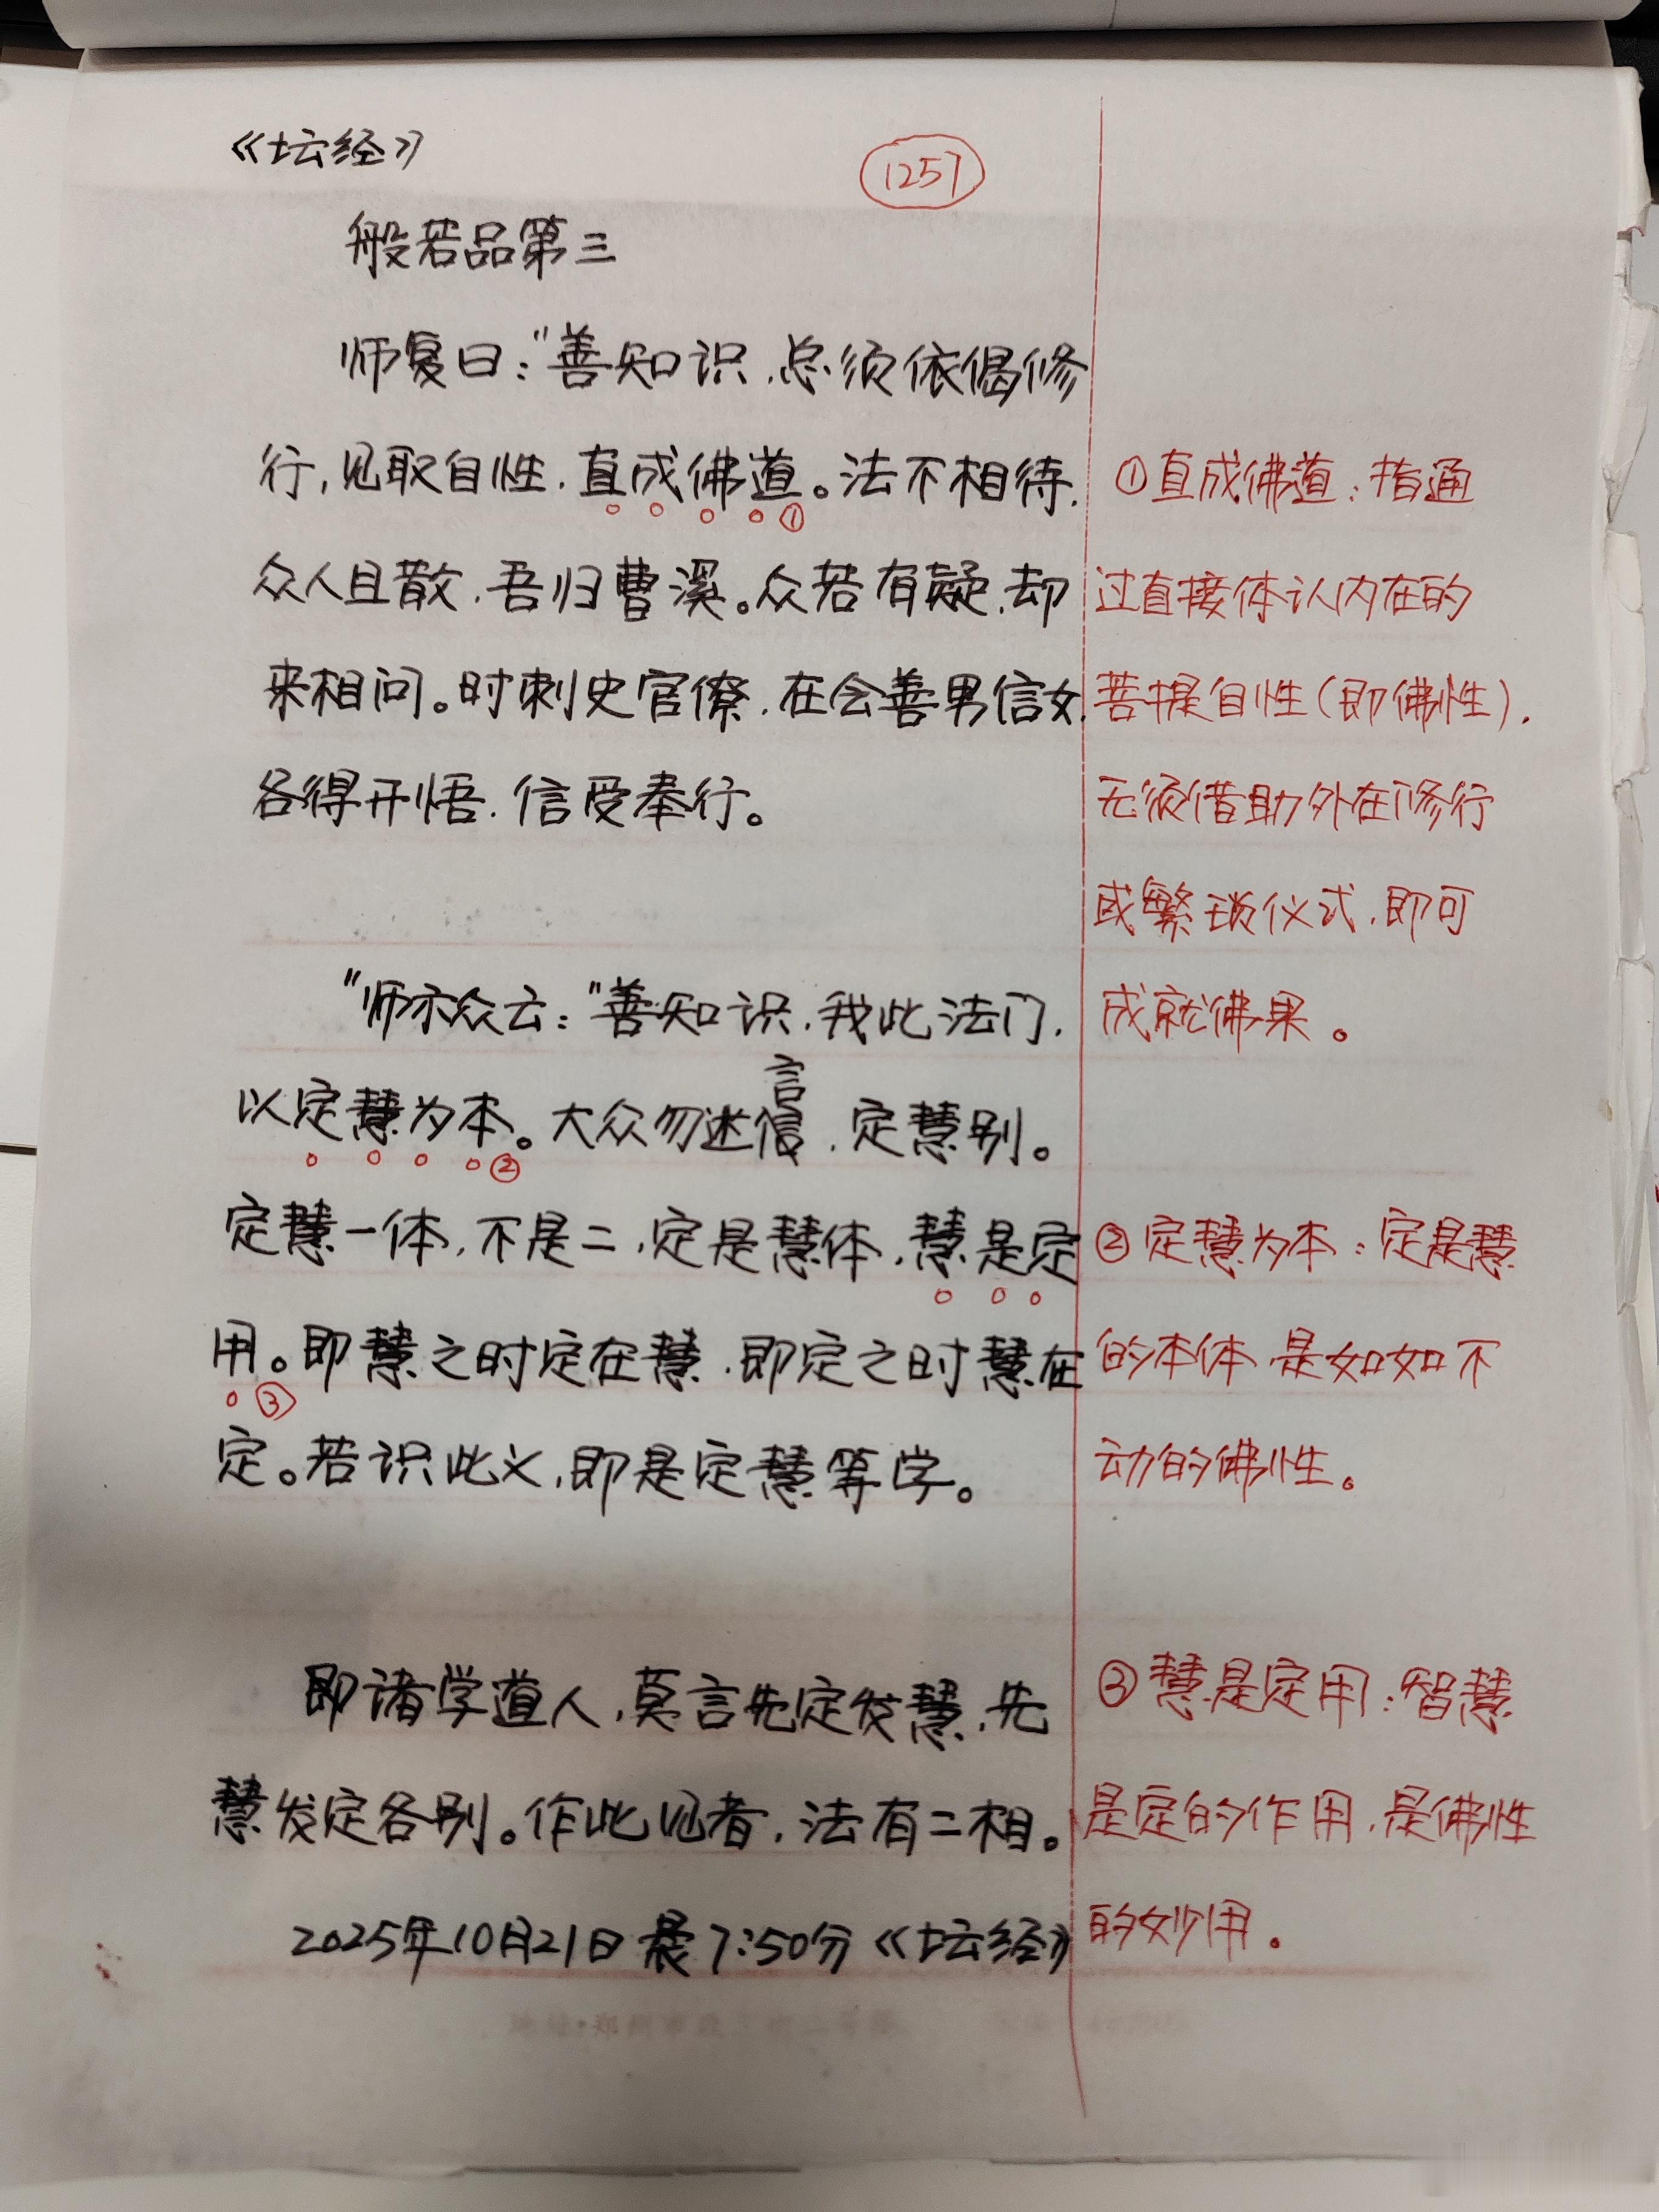 《坛经》
1257
般若品第三
师复曰："善知识,总须依偈修
行,见取自性,直成佛道。法不相待,
①
众人且散,吾归曹溪。众若有疑,却
来相问。时刺史官僚,在会善男信女,
各得开悟,信受奉行。
"师示众云："善知识,我此法门,
言
以定慧为本。大众勿迷信,定慧别。
②
定慧一体,不是二,定是慧体,慧是定
用。即慧之时定在慧,即定之时慧在
③
定。若识此义,即是定慧等学。
即诸学道人,莫言先定发慧,先
慧发定各别。作此见者,法有二相。
2025年10月21日晨7:50分《坛经》
①直成佛道：指通
过直接体认内在的
菩提自性(即佛性),
无须借助外在修行
或繁琐仪式,即可
成就佛果。
②定慧为本：定是慧
的本体,是如如不
动的佛性。
③慧是定用：智慧
是定的作用,是佛性
的妙用。